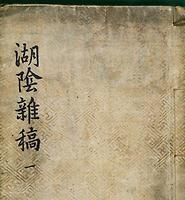 湖陰雜稿 一